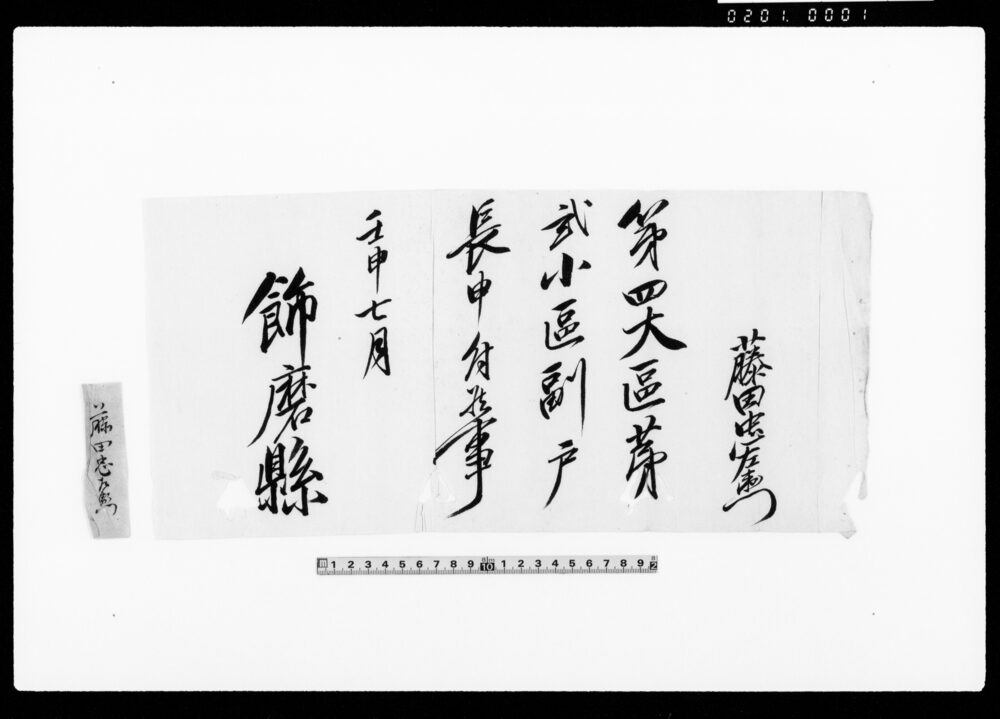 0201. 0001
藤田忠左衛門
第四大區第
貳小區副戸
長申付候事
壬申七月
飾磨縣
藤田忠左衛門
1 2 3 4 5 6 7 8 9 10 1 2 3 4 5 6 7 8 9 2